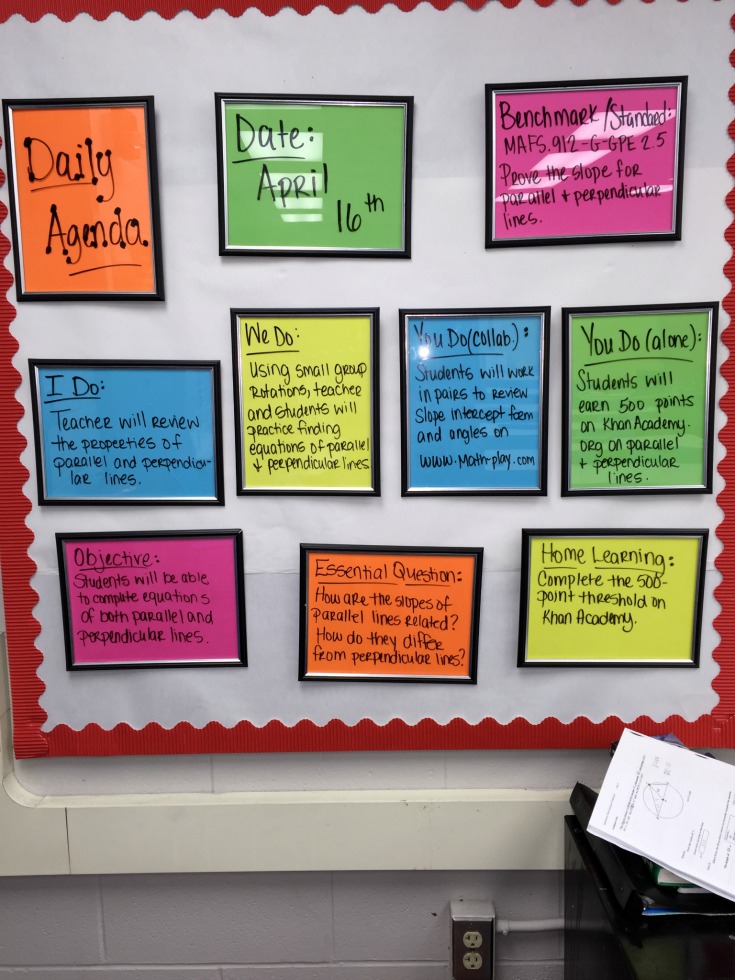 Daily
Agenda
Date:
April
16th
Benchmark/Standard:
MAFS.912-G-GPE 2.5
Prove the slope for
parallel + perpendicular
lines.
I Do:
Teacher will review
the properties of
parallel and perpendicu-
lar lines.
We Do:
Using small group
rotations, teacher
and students will
practice finding
equations of parallel
+ perpendicular lines.
You Do(collab.):
Students will work
in pairs to review
Slope intercept form
and angles on
www.Math-play.com
You Do (alone):
Students will
earn 500 points
on Khan Academy.
org on parallel
+ perpendicular
lines.
Objective:
Students will be able
to complete equations
of both parallel and
perpendicular lines.
Essential Question:
How are the slopes of
parallel lines related?
How do they differ
from perpendicular lines?
Home Learning:
Complete the 500-
point threshold on
Khan Academy.